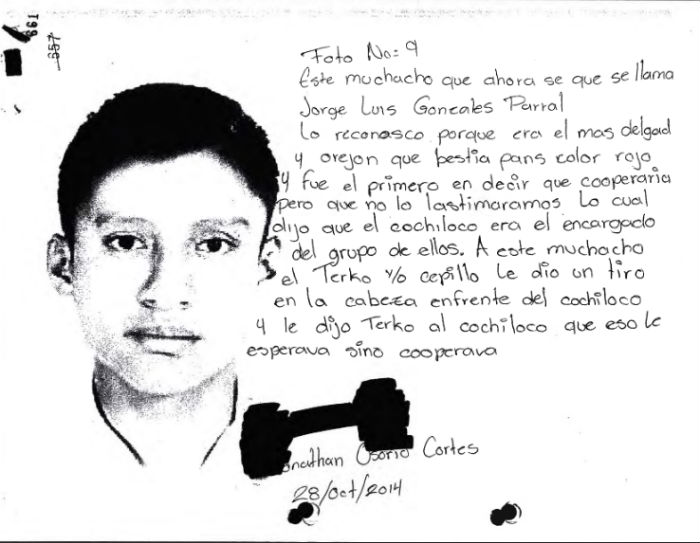 661
557
Foto No: 9
Este muchacho que ahora se que se llama
Jorge Luis Gonzales Parral
Lo reconosco porque era el mas delgad
y orejon que bestia pans color rojo
y fue el primero en decir que cooperaria
pero que no lo lastimaramos Lo cual
dijo que el cochiloco era el encargado
del grupo de ellos. A este muchacho
el Terko y/o cepillo Le dio un tiro
en la cabeza enfrente del cochiloco
y le dijo Terko al cochiloco que eso le
esperava sino cooperava
Jonathan Osorio Cortes
28/oct/2014